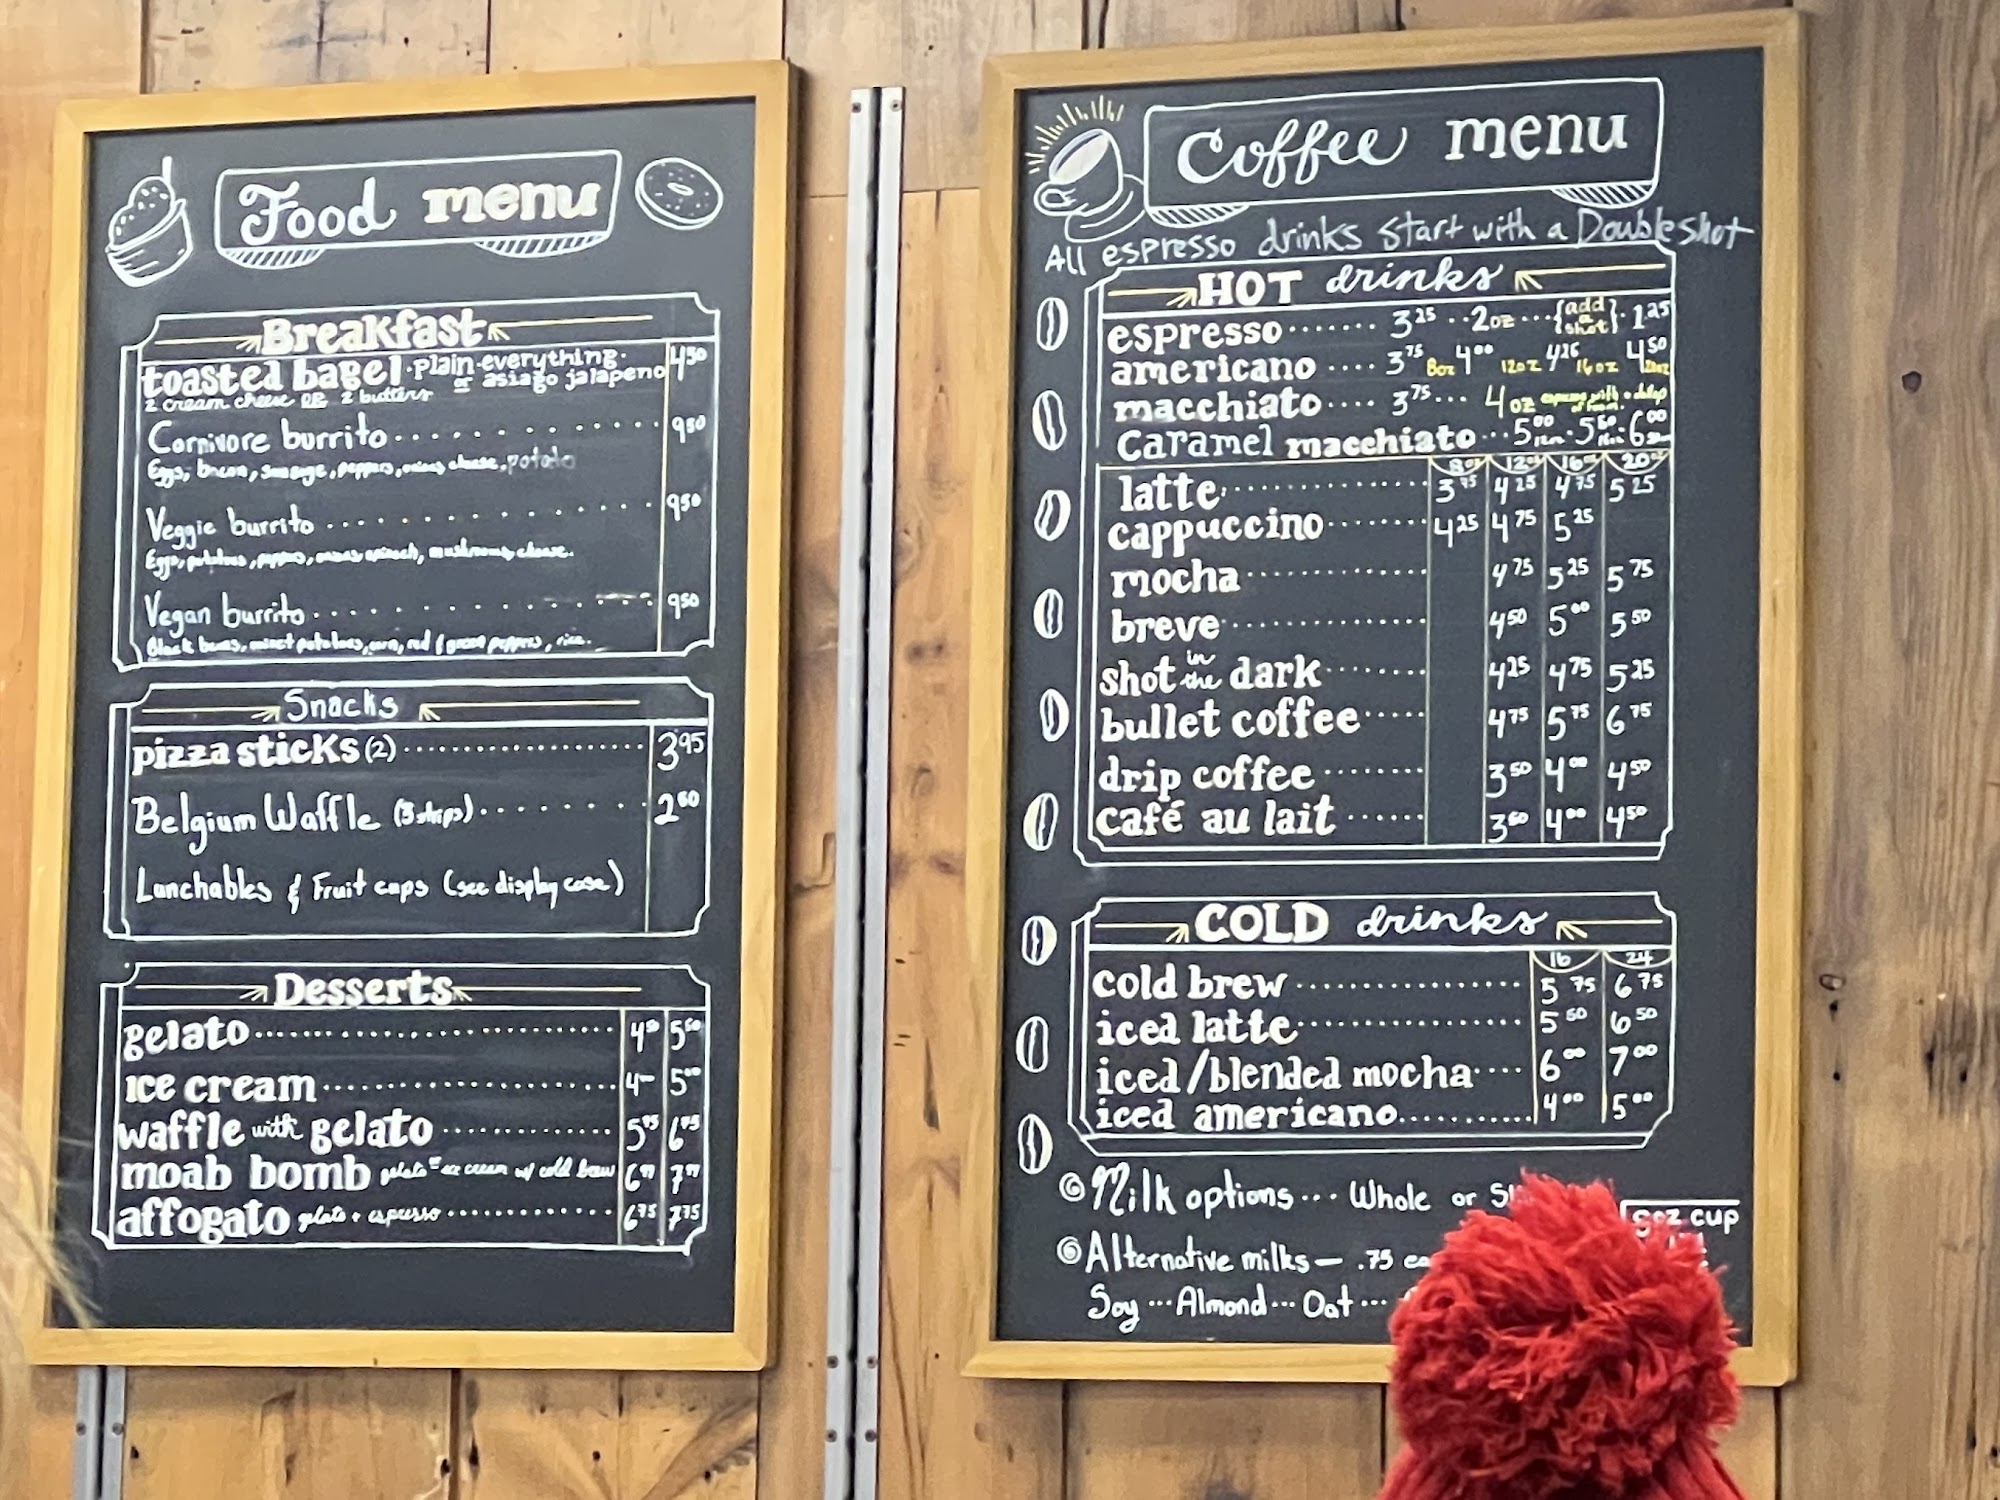 Food menu
Breakfast
toasted bagel · plain · everything · 4.50
or asiago jalapeno
2 cream cheese OR 2 butters
Carnivore burrito 9.50
Eggs, bacon, sausage, peppers, onions, cheese, potato
Veggie burrito 9.50
Eggs, potatoes, peppers, onions, spinach, mushrooms, cheese.
Vegan burrito 9.50
Black beans, potatoes, corn, red & green peppers, rice.
Snacks
pizza sticks (2) 3.95
Belgium Waffle (3 strips) 2.60
Lunchables & Fruit cups (see display case)
Desserts
gelato 4.50 5.50
ice cream 4.– 5.00
waffle with gelato 5.95 6.95
moab bomb gelato or ice cream w/ cold brew 6.99 7.99
affogato gelato + espresso 6.75 7.75
Coffee menu
All espresso drinks start with a Double shot
HOT drinks
espresso 3.25 2oz {add a shot} 1.25
americano 3.75 8oz 4.00 12oz 4.25 16oz 4.50 20oz
macchiato 3.75 4oz espresso with a dollop of foam.
Caramel macchiato 5.00 12oz 5.50 16oz 6.00 20oz
8oz 12oz 16oz 20oz
latte 3.75 4.25 4.75 5.25
cappuccino 4.25 4.75 5.25
mocha 4.75 5.25 5.75
breve 4.50 5.00 5.50
shot in the dark 4.25 4.75 5.25
bullet coffee 4.75 5.75 6.75
drip coffee 3.50 4.00 4.50
café au lait 3.60 4.00 4.50
COLD drinks
16 24
cold brew 5.75 6.75
iced latte 5.50 6.50
iced/blended mocha 6.00 7.00
iced americano 4.00 5.00
Milk options... Whole or
cup
Alternative milks — .75
Soy ... Almond ... Oat ...